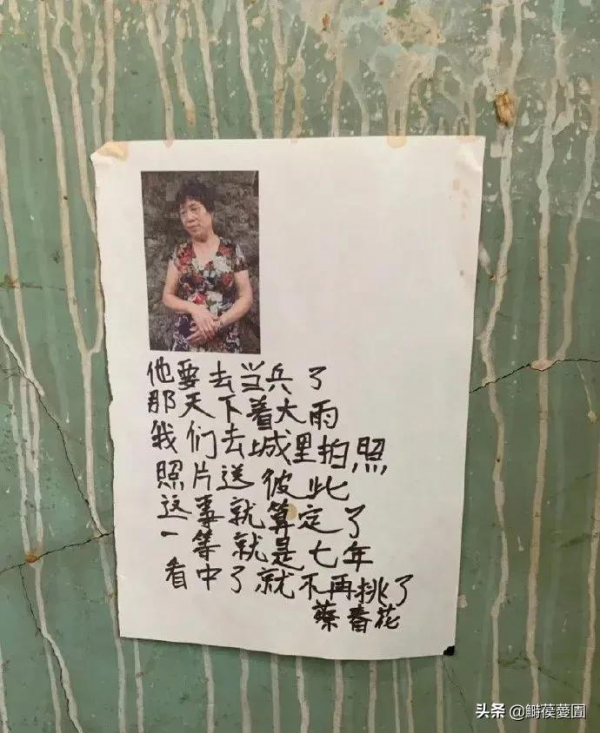 他要去当兵了
那天下着大雨
我们去城里拍照
照片送彼此
这事就算定了
一等就是七年
看中了就不再挑了
蔡春花
头条 @鰣葔薆圎